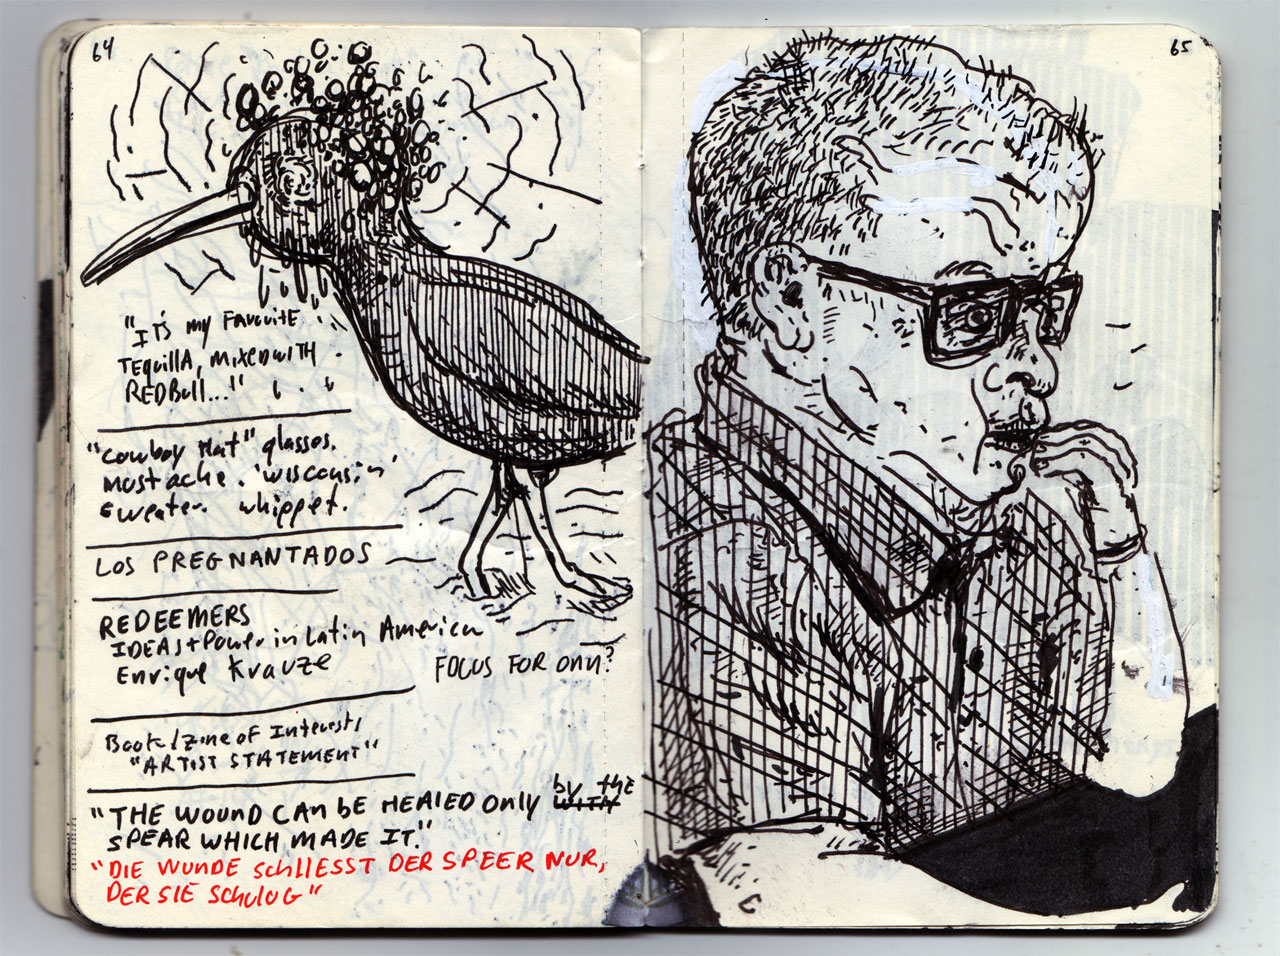 64
65
"IT'S MY FAVORITE
TEQUILLA, MIXED WITH
REDBULL..."
"COWBOY HAT" glasses.
MUSTACHE. 'WISCONSIN'
SWEATER. Whippet.
LOS PREGNANTADOS
REDEEMERS
IDEAS + Power in Latin America
Enrique Krauze
FOCUS FOR
Book/zine of Interests,
"ARTIST STATEMENT"
"THE WOUND CAN BE HEALED ONLY by the WITH
SPEAR WHICH MADE IT."
"DIE WUNDE SCHLIESST DER SPEER NUR,
DER SIE SCHULUG"